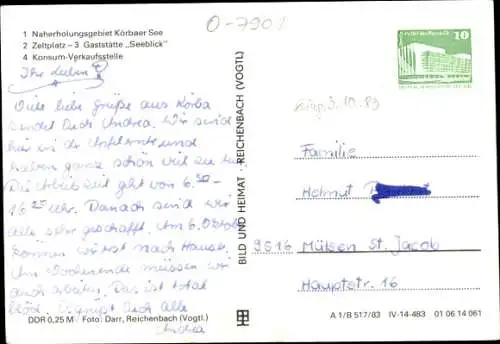 O-7901
1 Naherholungsgebiet Körbaer See
2 Zeltplatz – 3 Gaststätte „Seeblick"
4 Konsum-Verkaufsstelle
Ihr Lieben!
Viele liebe Grüße aus Körba
sendet Euch Andrea. Wir sind
hier in der Apfelernte und
haben ganz schön viel zu tun.
Die Arbeitszeit geht von 6.30-
16.25 Uhr. Danach sind wir
alle sehr geschafft. Am 6. Oktober
kommen wir erst nach Hause.
Am Wochenende müssen wir
auch arbeiten. Das ist total
blöd. Es grüßt Euch alle
Andrea
DDR 0,25 M Foto: Darr, Reichenbach (Vogtl.)
BILD UND HEIMAT · REICHENBACH (VOGTL)
10
3.10.89
Familie
Helmut
9516 Mülsen St. Jacob
Hauptstr. 16
A 1/B 517/83 IV-14-483 01 06 14 061